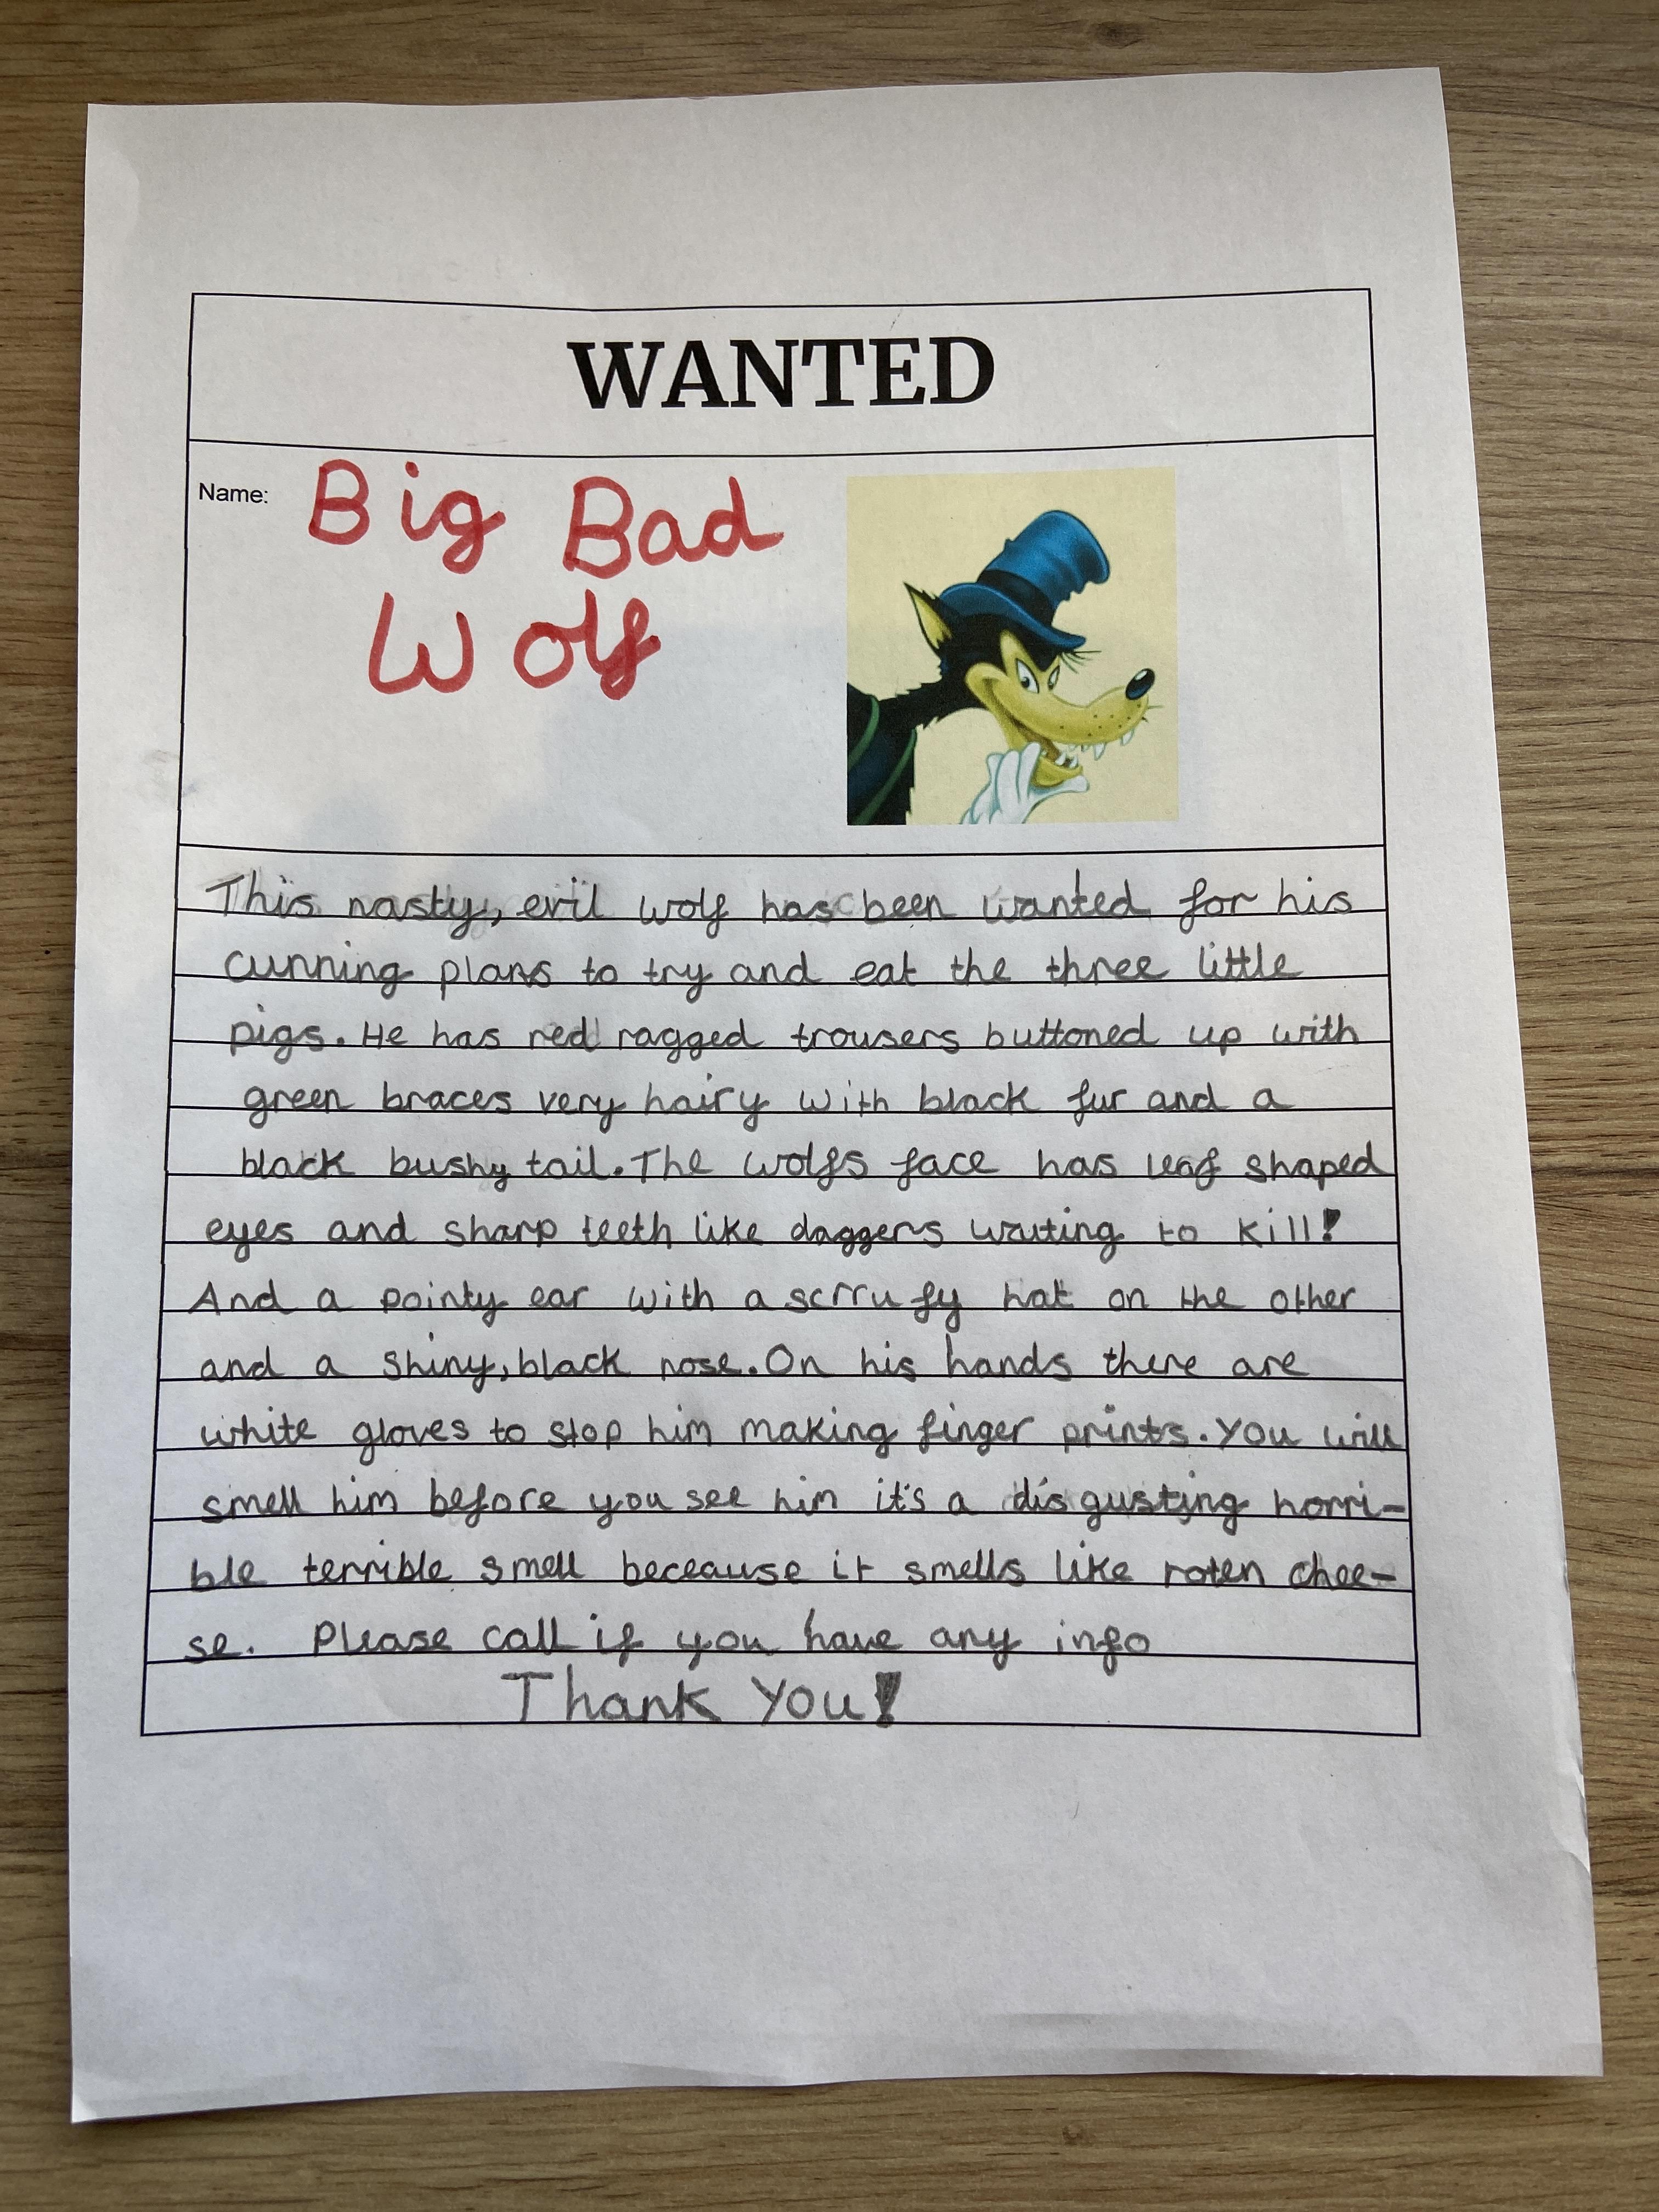 WANTED
Name: Big Bad
Wolf
This nasty, evil wolf has been wanted for his
cunning plans to try and eat the three little
pigs. He has red ragged trousers buttoned up with
green braces very hairy with black fur and a
black bushy tail. The wolfs face has leaf shaped
eyes and sharp teeth like daggers waiting to kill!
And a pointy ear with a scrrufy hat on the other
and a shiny, black nose. On his hands there are
white gloves to stop him making finger prints. You will
smell him before you see him it's a disgusting horri-
ble terrible smell beceause it smells like roten chee-
se. Please call if you have any info
Thank You!